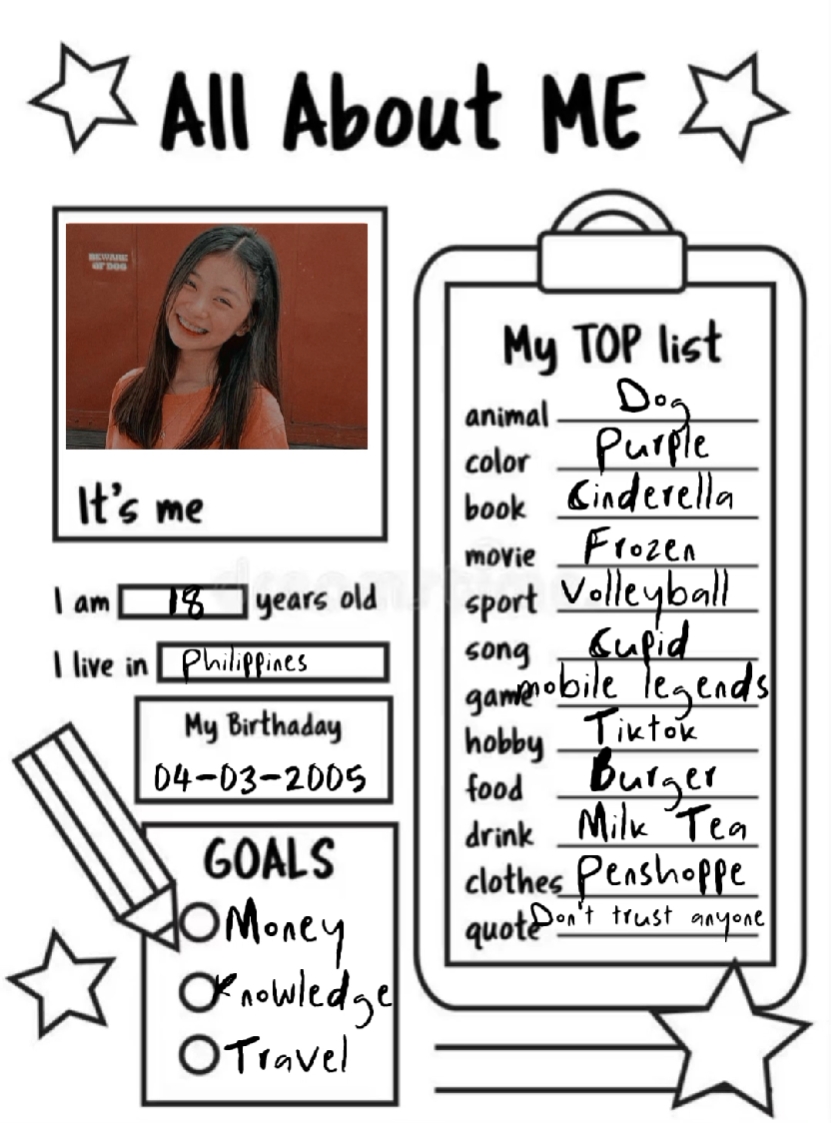 All About ME
BEWARE
OF DOG
It's me
I am 18 years old
I live in Philippines
My Birthaday
04-03-2005
GOALS
Money
Knowledge
Travel
My TOP list
animal Dog
color Purple
book Cinderella
movie Frozen
sport Volleyball
song Cupid
game mobile legends
hobby Tiktok
food Burger
drink Milk Tea
clothes Penshoppe
quote Don't trust anyone